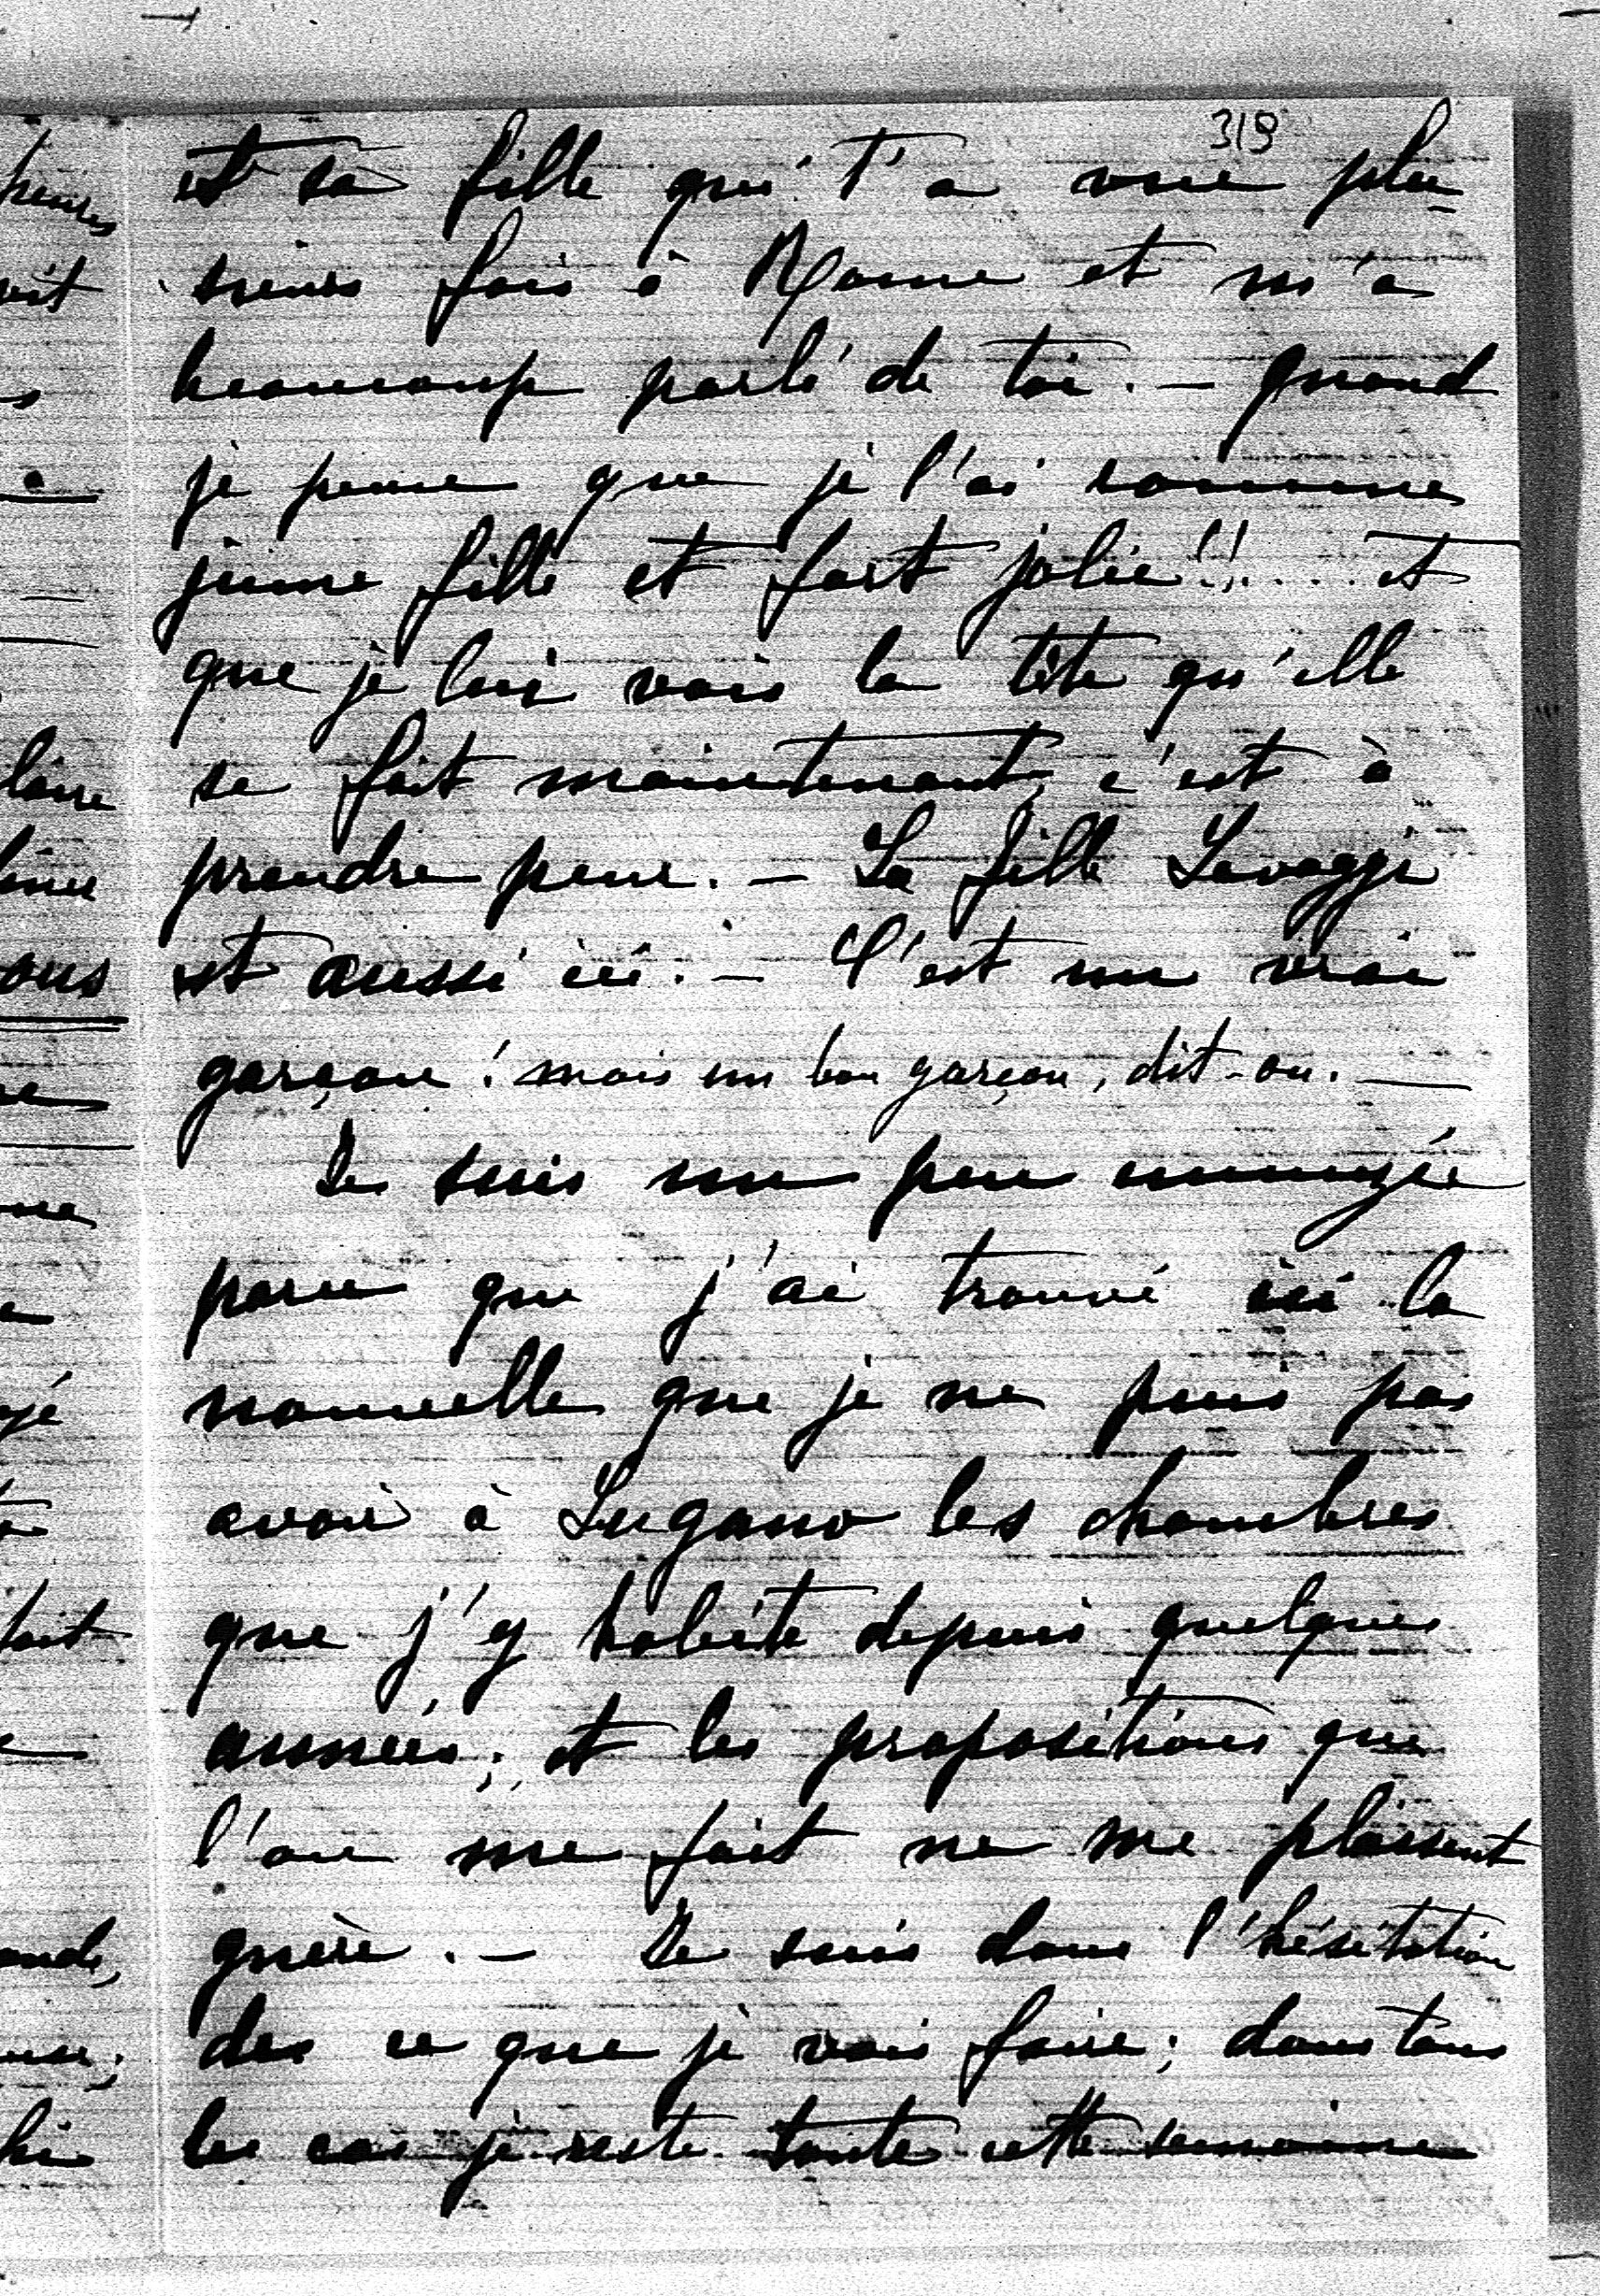 319
et sa fille qui t'a vue plu-
sieurs fois à Rome et m'a
beaucoup parlé de toi. — quand
je pense que je l'ai connue
jeune fille et fort jolie!!.... et
que je lui vois la tête qu'elle
se fait maintenant, c'est à
prendre peur. — La fille Lavaggi
est aussi ici. — C'est un vrai
garçon! mais un bon garçon, dit-on. —
Je suis un peu ennuyée
parce que j'ai trouvé ici la
nouvelle que je ne puis pas
avoir à Lugano les chambres
que j'y habite depuis quelques
années; et les propositions que
l'on me fait ne me plaisent
guère. — Je suis dans l'hésitation
des ce que je vais faire; dans tous
les cas je reste toute cette semaine